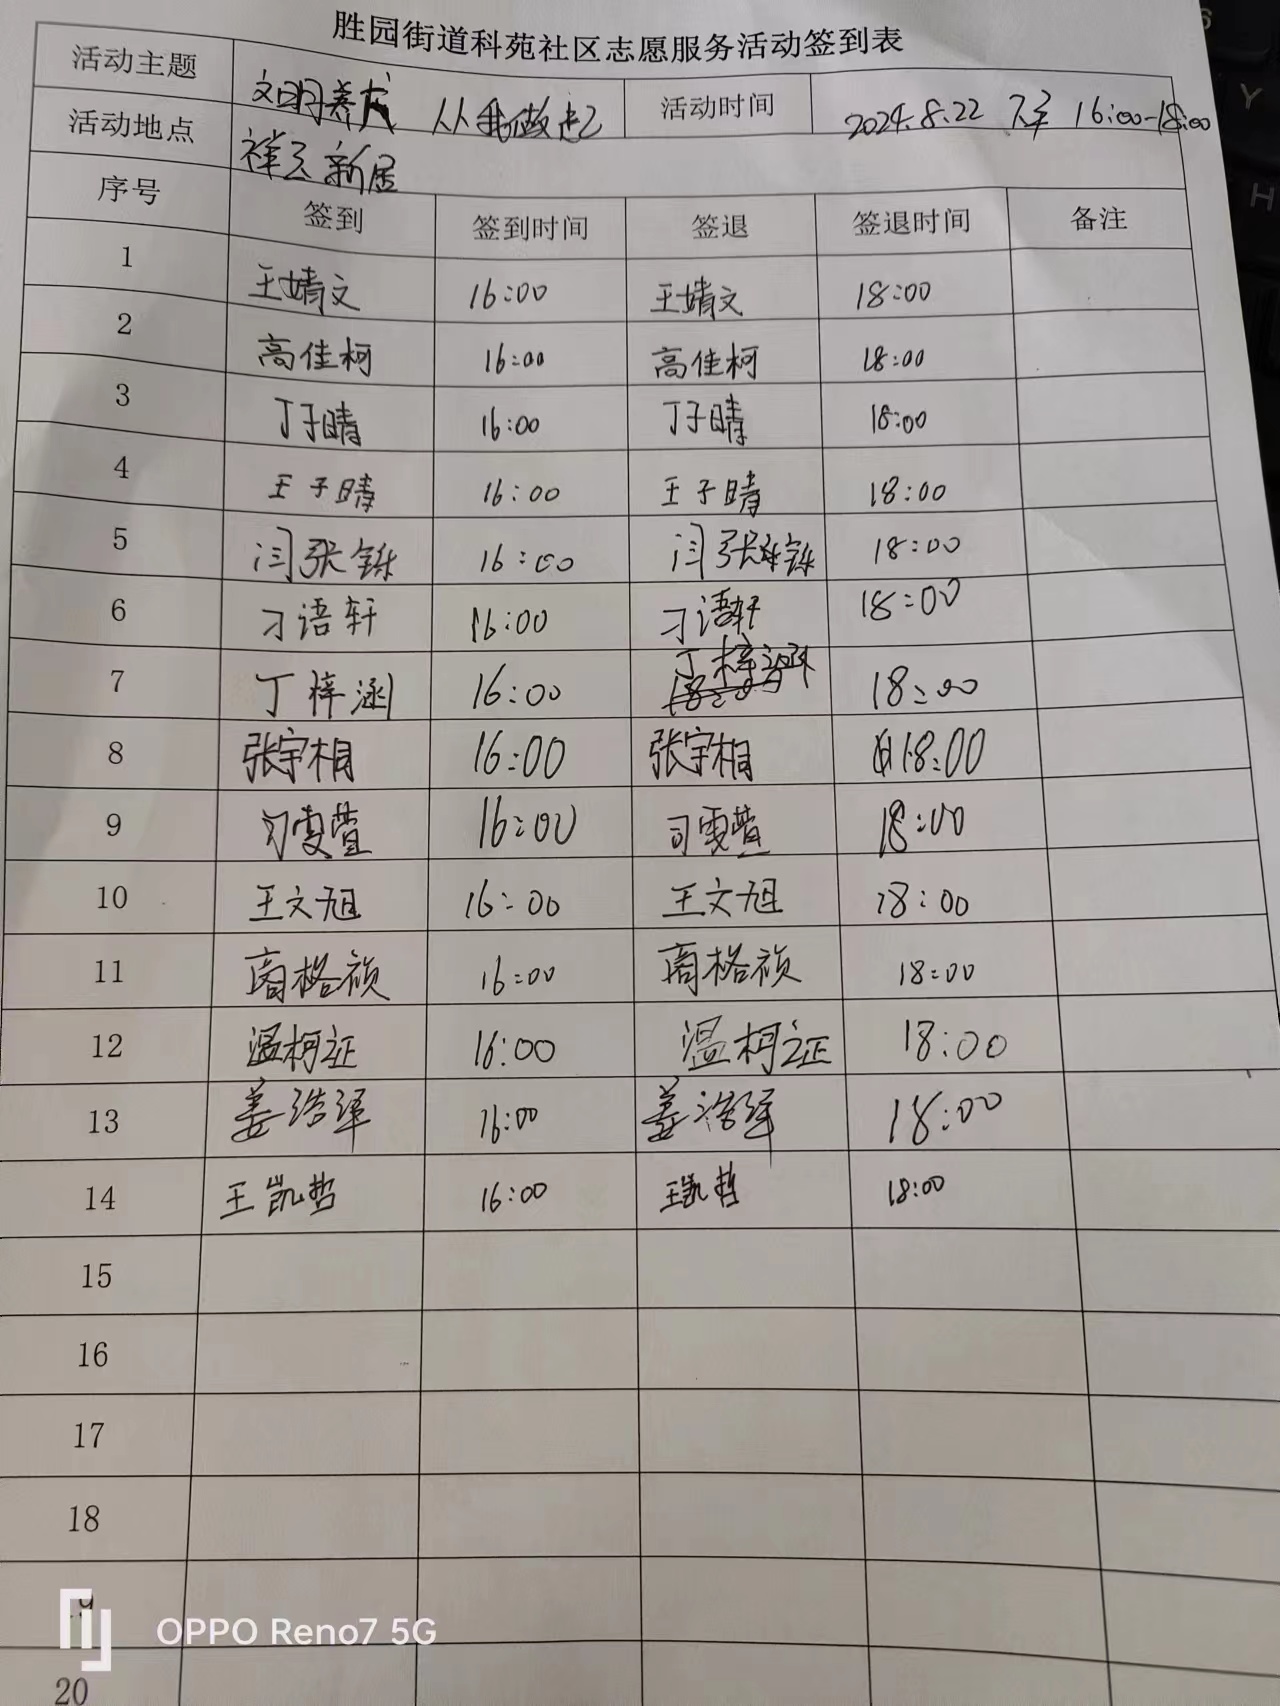 胜园街道科苑社区志愿服务活动签到表
活动主题 文明养成 从我做起 活动时间 2024.8.22 下午 16:00-18:00
活动地点 祥云新居
序号 签到 签到时间 签退 签退时间 备注
1 王婧文 16:00 王婧文 18:00
2 高佳柯 16:00 高佳柯 18:00
3 丁子晴 16:00 丁子晴 18:00
4 王子晴 16:00 王子晴 18:00
5 闫张铄 16:00 闫张铄 18:00
6 刁语轩 16:00 刁语轩 18:00
7 丁梓涵 16:00 丁梓涵 18:00
8 张宇相 16:00 张宇相 18:00
9 16:00 18:00
10 王文旭 16:00 王文旭 18:00
11 商格祯 16:00 商格祯 18:00
12 温柯证 16:00 温柯证 18:00
13 姜浩泽 16:00 姜浩泽 18:00
14 王凯哲 16:00 王凯哲 18:00
15
16
17
18
19
OPPO Reno7 5G
20